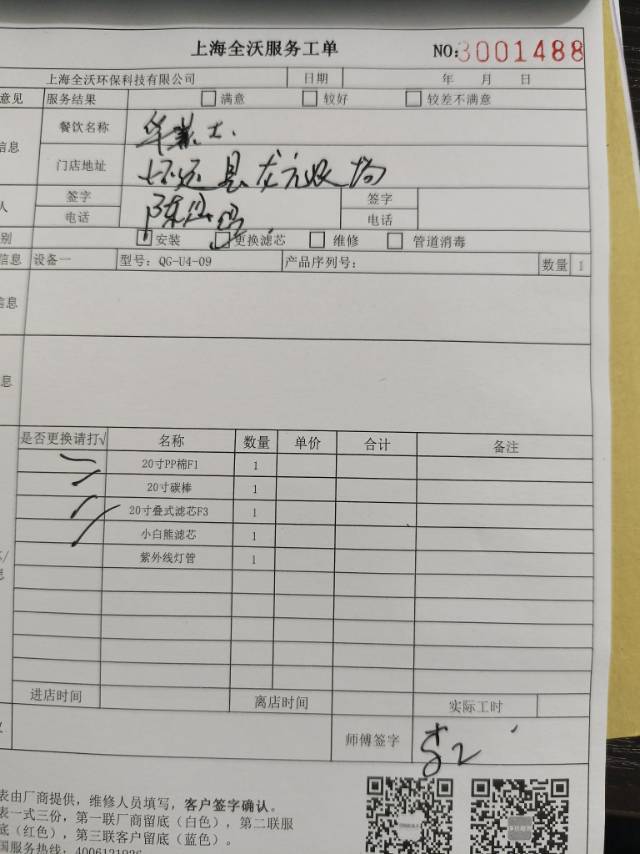 上海全沃服务工单 NO:3001488
上海全沃环保科技有限公司 日期 年 月 日
意见 服务结果 □满意 □较好 □较差不满意
信息 餐饮名称 华莱士
门店地址
人 签字 签字
电话 电话
别 □安装 □更换滤芯 □维修 □管道消毒
信息 设备一 型号: QG-U4-09 产品序列号: 数量 1
信息
息
是否更换请打√ 名称 数量 单价 合计 备注
20寸PP棉F1 1
20寸碳棒 1
20寸叠式滤芯F3 1
小白熊滤芯 1
紫外线灯管 1
进店时间 离店时间 实际工时
师傅签字
表由厂商提供，维修人员填写，客户签字确认。
表一式三份，第一联厂商留底（白色），第二联服
底（红色），第三联客户留底（蓝色）。
国服务热线: